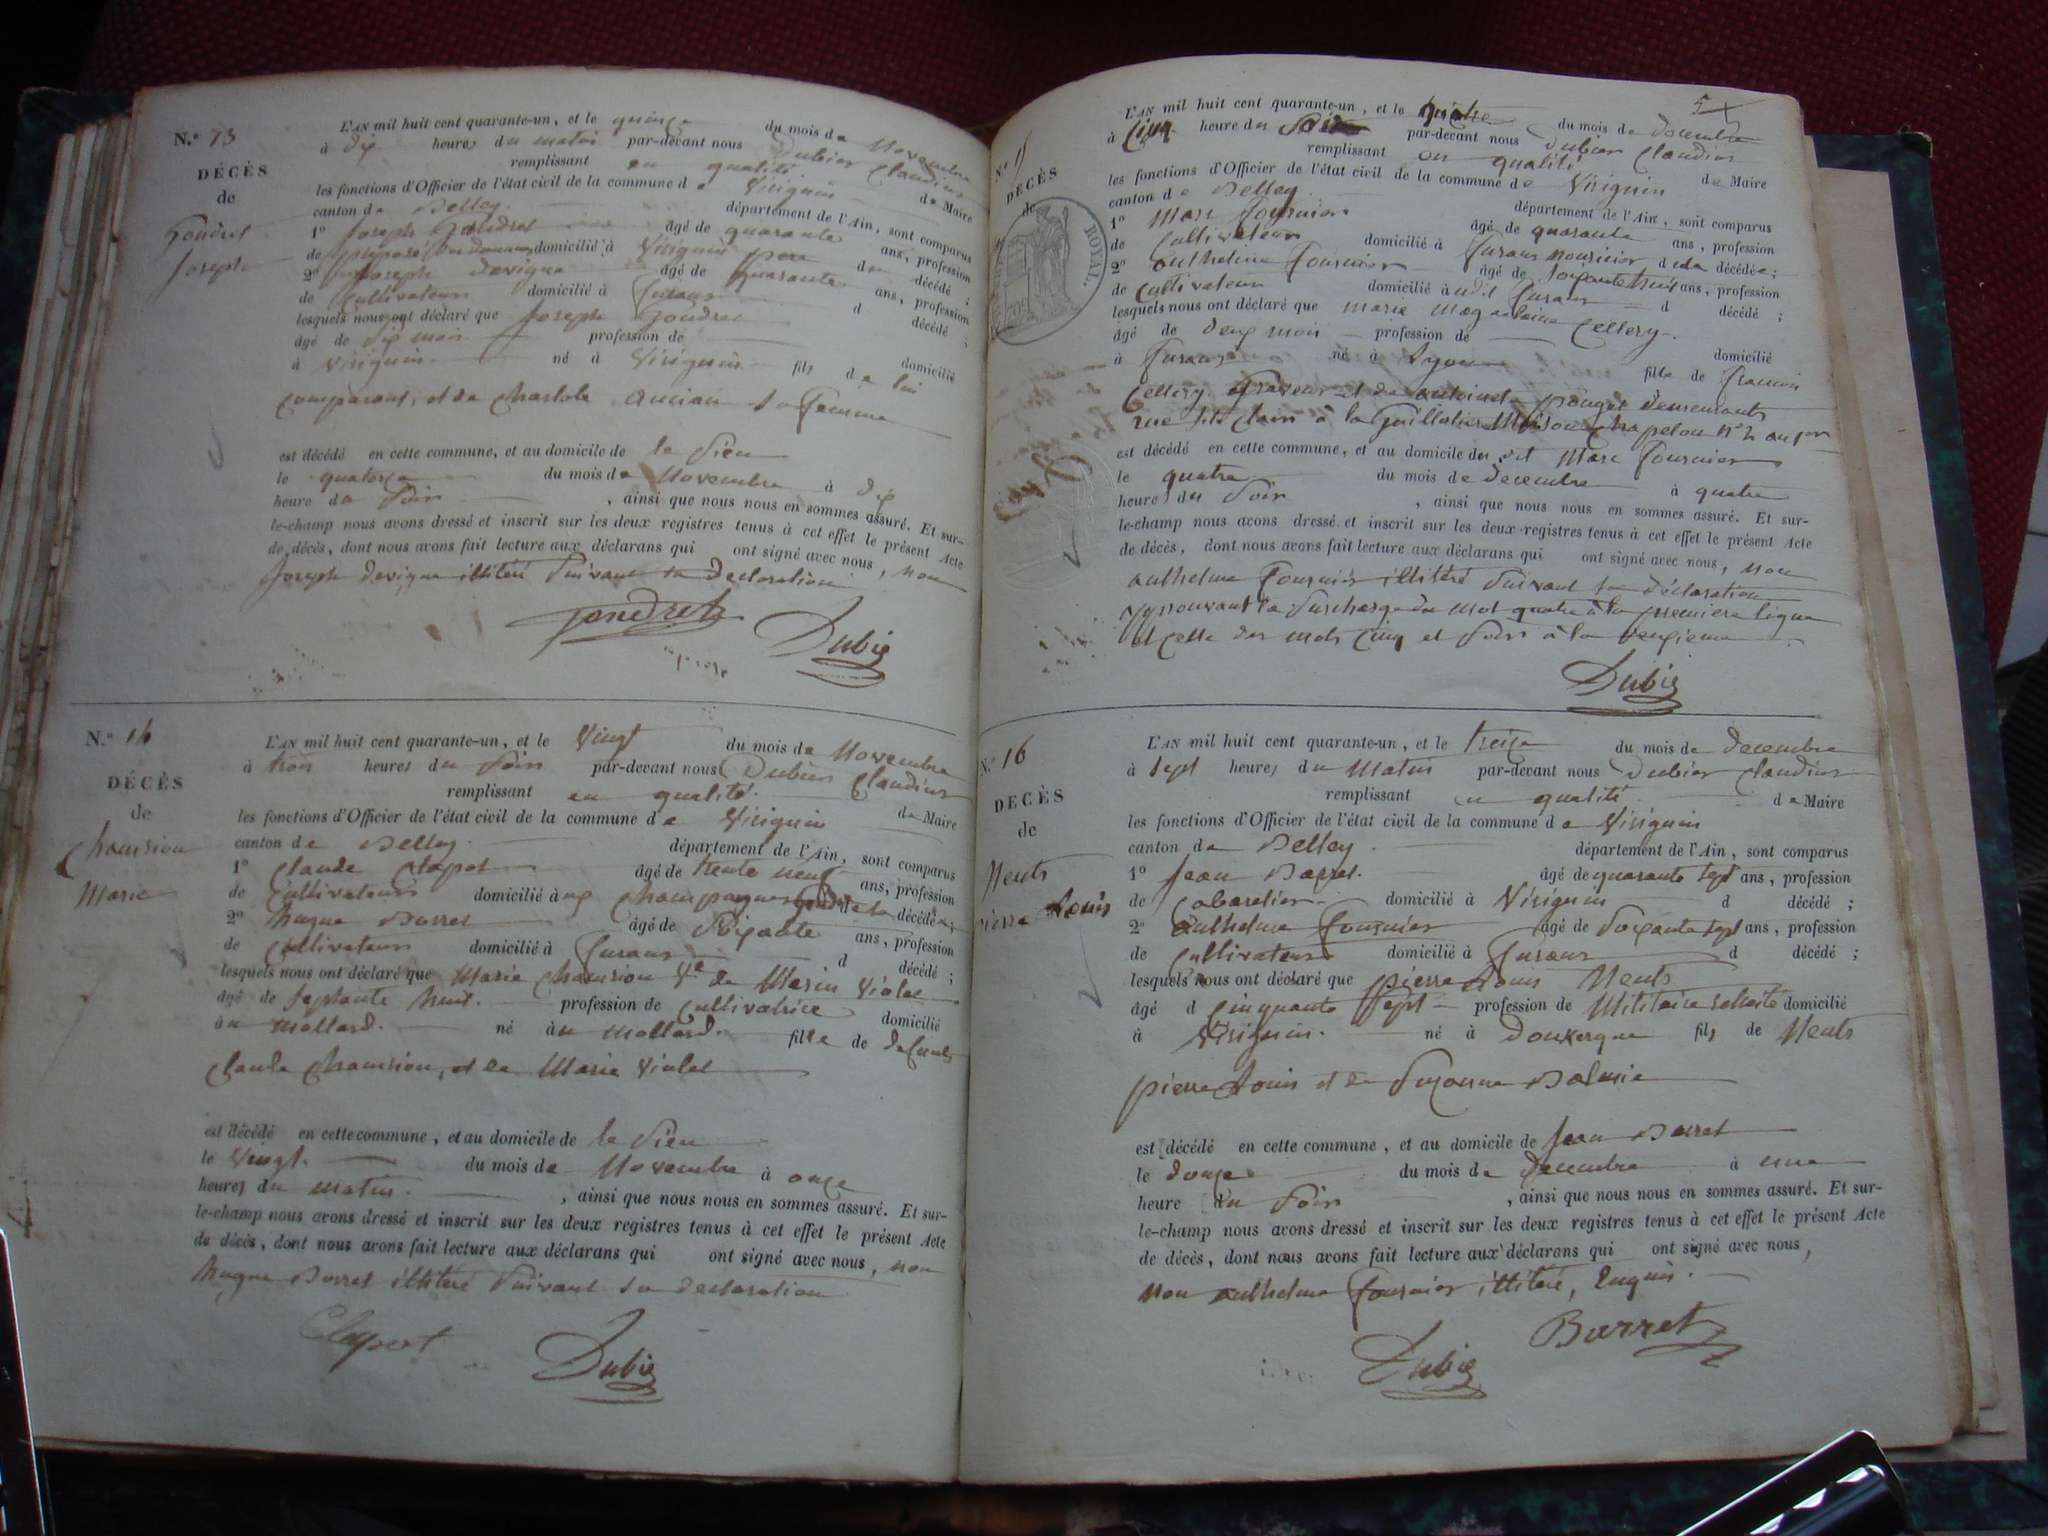 N.° 13
DÉCÈS
de
Gondret
Joseph
L'AN mil huit cent quarante-un, et le quinze du mois de Novembre
à dix heures du matin par-devant nous Dubier Claudius
remplissant en qualité de Maire
les fonctions d'Officier de l'état civil de la commune de Virignin
canton de Belley département de l'Ain, sont comparus
1° Joseph Gondret âgé de quarante ans, profession
de préposé des Douanes domicilié à Virignin père du décédé;
2° Joseph devigne âgé de quarante ans, profession
de Cultivateur domicilié à d décédé;
lesquels nous ont déclaré que Joseph Gondret
âgé de dix mois profession de domicilié
à Virignin né à Virignin fils de lui
comparant, et de Charlote sa femme
est décédé en cette commune, et au domicile de le Sien
le quatorze du mois de Novembre à dix
heure du Soir , ainsi que nous nous en sommes assuré. Et sur-
le-champ nous avons dressé et inscrit sur les deux registres tenus à cet effet le présent Acte
de décès, dont nous avons fait lecture aux déclarans qui ont signé avec nous, non
Joseph devigne illitéré Suivant sa declaration
Gondret Dubie
N.° 14
DÉCÈS
de
Chamrion
Marie
L'AN mil huit cent quarante-un, et le Vingt du mois de Novembre
à trois heures du Soir par-devant nous Dubier Claudius
remplissant en qualité de Maire
les fonctions d'Officier de l'état civil de la commune de Virignin
canton de Belley département de l'Ain, sont comparus
1° Claude Clapet âgé de trente neuf ans, profession
de Cultivateur domicilié à décédée;
2° hugue Barret âgé de Soixante ans, profession
de Cultivateur domicilié à d décédé;
lesquels nous ont déclaré que Marie Chamrion Ve de Marin Violet
âgé de Septante huit profession de Cultivatrice domicilié
à u mollard né à u mollard fille de defunts
Claude Chamrion, et de Marie Violet
est décédé en cette commune, et au domicile de le Sien
le Vingt du mois de Novembre à onze
heures du matin , ainsi que nous nous en sommes assuré. Et sur-
le-champ nous avons dressé et inscrit sur les deux registres tenus à cet effet le présent Acte
de décès, dont nous avons fait lecture aux déclarans qui ont signé avec nous, non
hugue Barret illitéré Suivant Sa declaration
Dubie
5
N.° 15
DÉCÈS
de
ROYAL.
L'AN mil huit cent quarante-un, et le quatre du mois de Decembre
à Cinq heure du Soir par-devant nous Dubier Claudius
remplissant en qualité de Maire
les fonctions d'Officier de l'état civil de la commune de Virignin
canton de Belley département de l'Ain, sont comparus
1° Marc Fournier âgé de quarante ans, profession
de Cultivateur domicilié à nouricier de la décédée;
2° Anthelme Fournier âgé de Soixante huit ans, profession
de Cultivateur domicilié à udit d décédé;
lesquels nous ont déclaré que marie magdelaine Cellery
âgé de deux mois profession de domicilié
à né à Lyon fille de
Cellery et de demeurants
rue à la Guillotiere Maison Chapelon n° 2
est décédé en cette commune, et au domicile du dit Marc Fournier
le quatre du mois de decembre à quatre
heures du Soir , ainsi que nous nous en sommes assuré. Et sur-
le-champ nous avons dressé et inscrit sur les deux registres tenus à cet effet le présent Acte
de décès, dont nous avons fait lecture aux déclarans qui ont signé avec nous, non
anthelme Fournier illitéré Suivant Sa déclaration
approuvant la Surcharge du mot quatre à la premiere ligne
et celle des mots Cinq et Soir à la deuxieme
Dubie
N.° 16
DÉCÈS
de
Neuts
pierre Louis
L'AN mil huit cent quarante-un, et le treize du mois de Decembre
à Sept heures du Matin par-devant nous Dubier Claudius
remplissant en qualité de Maire
les fonctions d'Officier de l'état civil de la commune de Virignin
canton de Belley département de l'Ain, sont comparus
1° Jean Barret âgé de quarante Sept ans, profession
de Cabaretier domicilié à Virignin d décédé;
2° Anthelme Fournier âgé de Soixante Sept ans, profession
de Cultivateur domicilié à d décédé;
lesquels nous ont déclaré que pierre Louis Neuts
âgé d Cinquante Sept profession de Militaire domicilié
à Virignin né à Donkerque fils de Neuts
pierre Louis et de Suzanne
est décédé en cette commune, et au domicile de Jean Barret
le douze du mois de Decembre à une
heure du Soir , ainsi que nous nous en sommes assuré. Et sur-
le-champ nous avons dressé et inscrit sur les deux registres tenus à cet effet le présent Acte
de décès, dont nous avons fait lecture aux déclarans qui ont signé avec nous,
Non anthelme Fournier illitéré, Enquis
Barret
Dubie